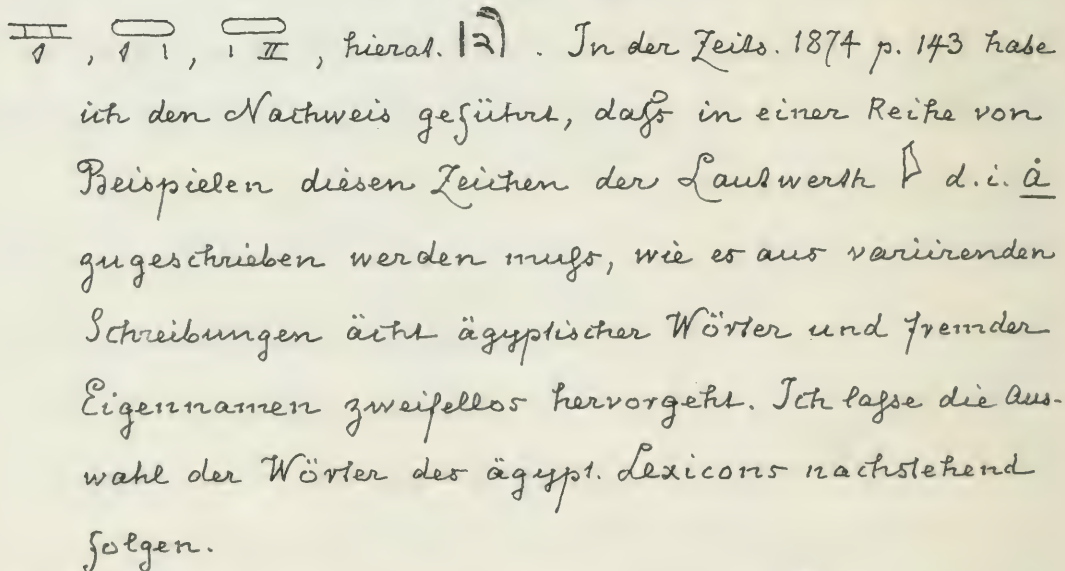 , , , hierat. . In der Zeits. 1874 p. 143 habe
ich den Nachweis geführt, daſs in einer Reihe von
Beispielen diesen Zeichen der Lautwerth 𓇋 d.i. ȧ
zugeschrieben werden muſs, wie es aus variirenden
Schreibungen ächt ägyptischer Wörter und fremder
Eigennamen zweifellos hervorgeht. Ich laſse die Aus-
wahl der Wörter des ägypt. Lexicons nachstehend
folgen.